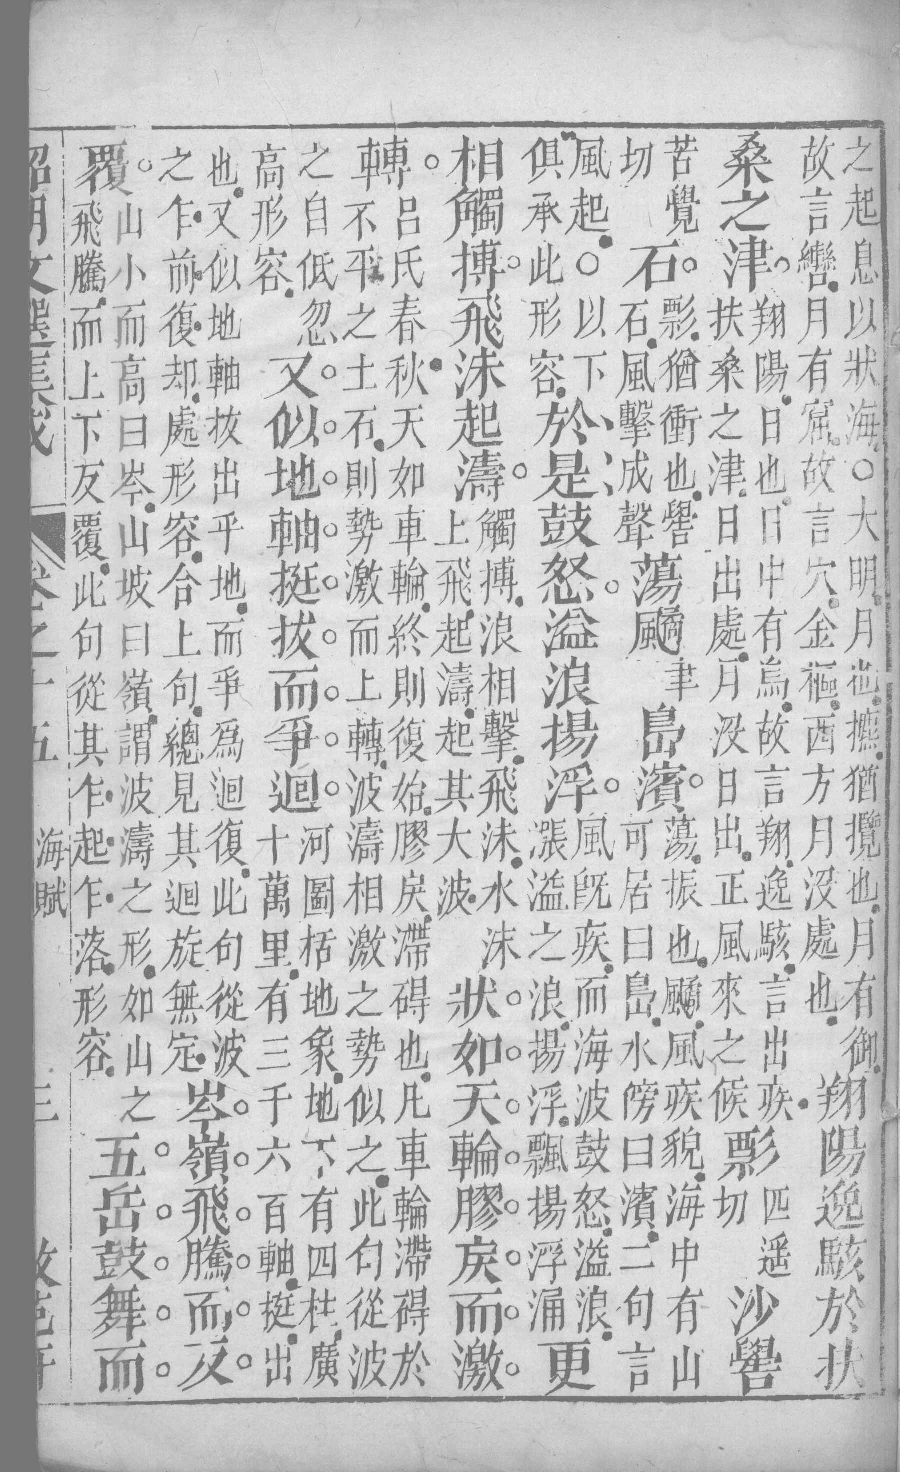 之起息以狀海○大明月也攠猶攬也月有御
故言轡月有窟故言穴金樞西方月沒處也
翔陽逸駭於扶
桑之津
翔陽日也日中有烏故言翔逸駭言出疾
扶桑之津日出處月沒日出正風來之候
彯
匹遥
切
沙礐
苦覺
切
石
彯猶衝也礐
石風擊成聲
蕩䬍
聿
島濱
蕩振也䬍風疾貌海中有山
可居曰島水傍曰濱二句言
風起○以下
俱承此形容
於是鼓怒溢浪揚浮
風旣疾而海波鼓怒溢浪
漲溢之浪揚浮飄揚浮涌
更
相觸搏飛沫起濤
觸搏浪相擊飛沫水沫
上飛起濤起其大波
狀如天輪膠戾而激
轉
呂氏春秋天如車輪終則復始膠戾滯碍也凡車輪滯碍於
不平之土石則勢激而上轉波濤相激之勢似之此句從波
之自低忽
高形容
又似地軸挺拔而爭迴
河圖括地象地下有四柱廣
十萬里有三千六百軸挺出
也又似地軸拔出乎地而爭爲迴復此句從波
之乍前復却處形容合上句總見其迴旋無定
岑嶺飛騰而反
覆
山小而高曰岑山坡曰嶺謂波濤之形如山之
飛騰而上下反覆此句從其乍起乍落形容
五岳鼓舞而
昭明文選集成 卷之十五 海賦 三